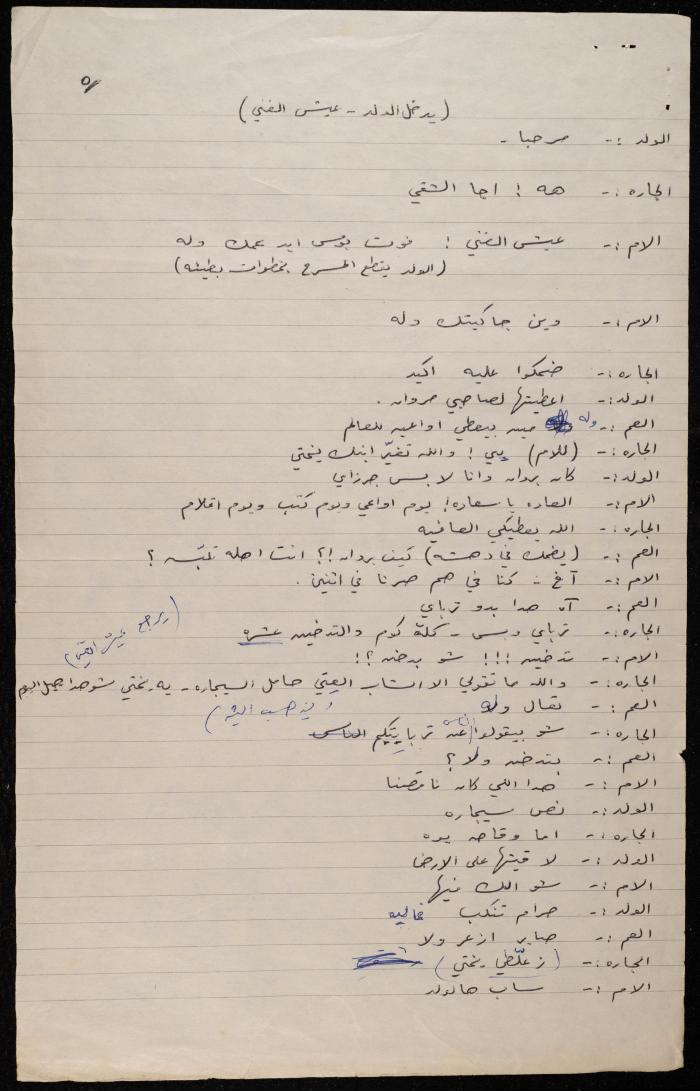 ٥
(يدخل الولد - عيش الغني)
الولد :- مرحبا -
الجاره :- هه ! اجا الشقي
الام :- عيش الغني ! فوت بوس ايد عمك وله
(الولد يقطع المسرح بخطوات بطيئه)
الام :- وين جاكيتك وله
الجاره :- ضحكوا عليه اكيد
الولد :- اعطيتها لصاحبي مروان .
العم :- وله مين بيعطي اواعيه للعالم
الجاره :- (للام) يي ! والله تغيّر ابنك يختي
الولد :- كان بردان وانا لابس جرزاي
الام :- العاده يا سعاده ! يوم اواعي ويوم كتب ويوم اقلام
الجاره :- الله يعطيكي العافيه
العم :- (يضحك في دهشه) كيف بردان !؟ انت اهله تلبّسه ؟
الام :- آخ :- كنا في هم صرنا في اثنين .
العم :- آه هدا بدو ترباي
الجاره :- ترباي وبس - كملة كوم والتدخين عشره
(يرجع عيش الغني)
الام :- تدخين !!! شو بدخن ؟!
الجاره :- والله ما تقولي الا الشاب العِتي حامل السيجاره - يه يختي شو هدا جيل اليوم
العم :- تعال وله
(يذهب اليه)
الجاره :- شو بيقولوا الناس عنه تربايتكم
العم :- بتدخن ولا ؟
الام :- هدا اللي كان ناقصنا
الولد :- نص سيجاره
الجاره :- اما وقاحه يوه
الولد :- لاقيتها على الارض
الام :- شو الك فيها
الولد :- حرام تنكب غاليه
العم :- صاير ازعر ولا
الجاره :- (زغلّطي يختي)
الام :- ساب هالولد